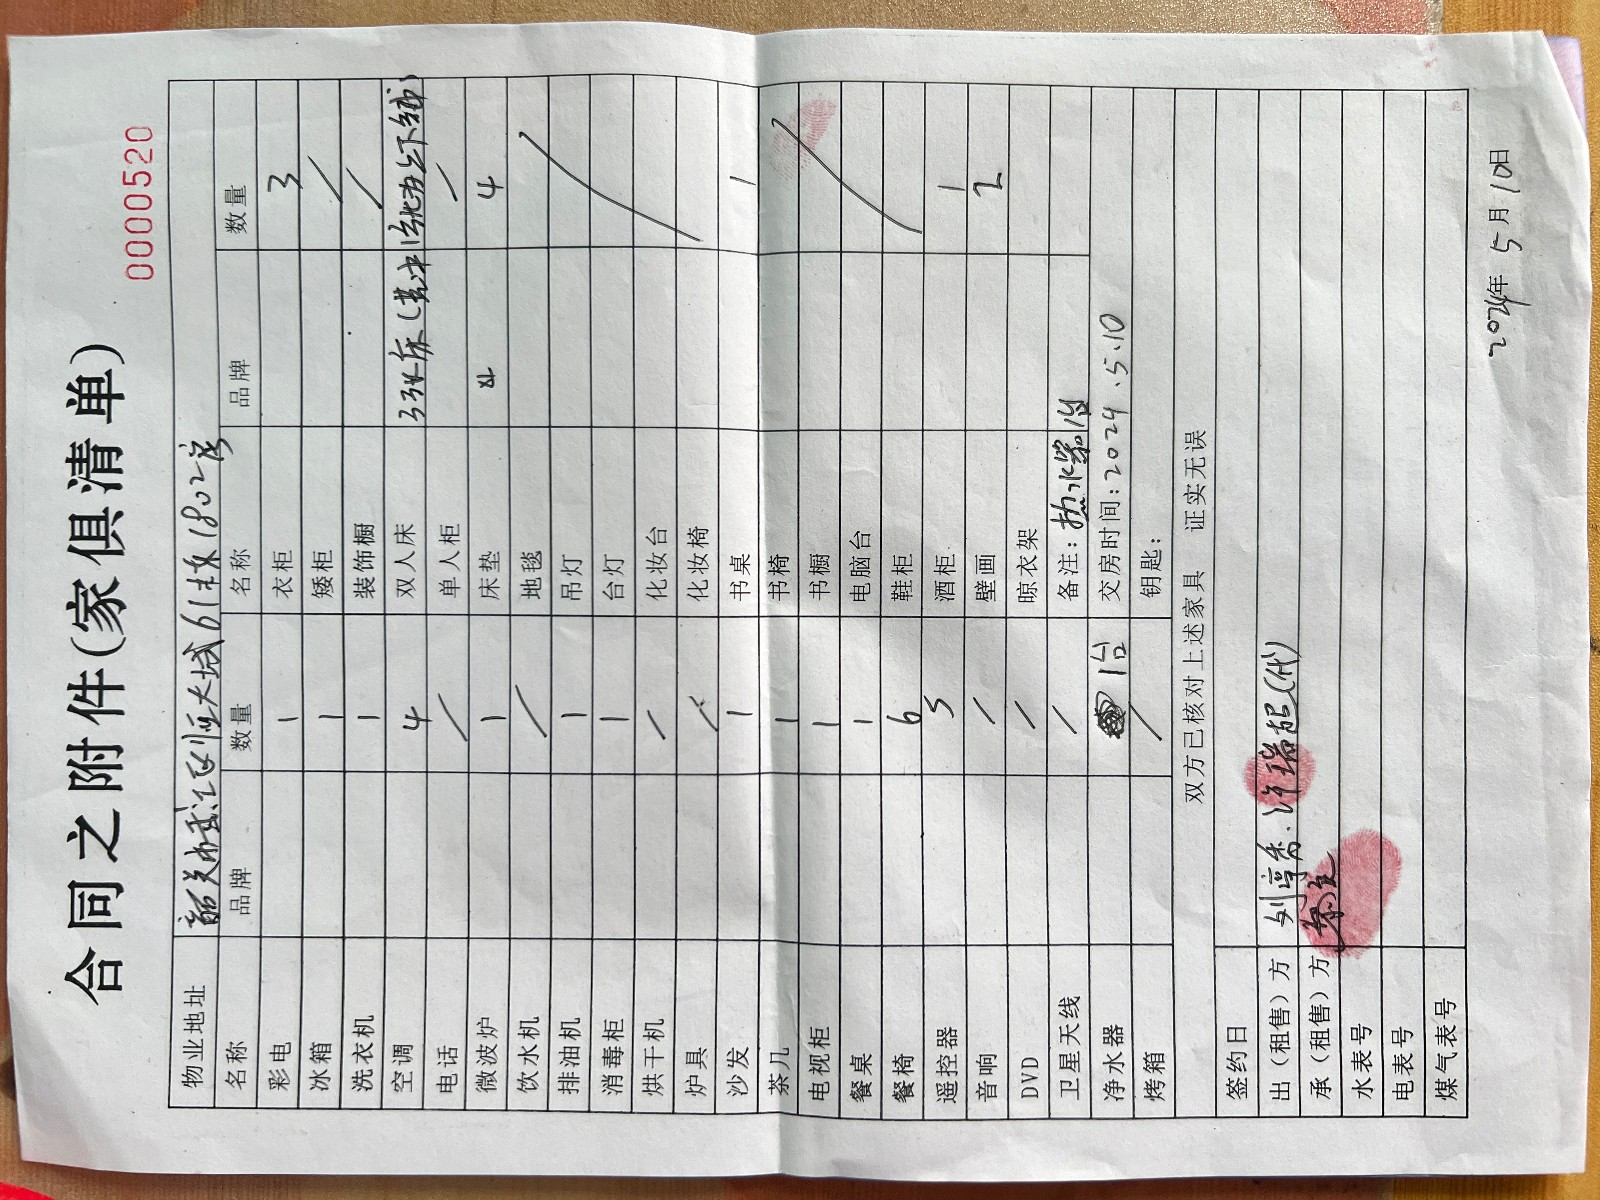 合同之附件(家俱清单)
0000520
物业地址 韶关市武江区恒大城61栋1802房
名称 品牌 数量 名称 品牌 数量
彩电 1 衣柜 3
冰箱 1 矮柜 /
洗衣机 1 装饰橱 /
空调 4 双人床 3张床(其中1张为上下铺)
电话 / 单人柜 /
微波炉 1 床垫 4
饮水机 / 地毯
排油机 1 吊灯
消毒柜 1 台灯
烘干机 / 化妆台
炉具 / 化妆椅
沙发 1 书桌 1
茶几 1 书椅
电视柜 1 书橱
餐桌 1 电脑台
餐椅 6 鞋柜
遥控器 5 酒柜 1
音响 / 壁画 2
DVD / 晾衣架
卫星天线 / 备注:热水器1台
净水器 1台 交房时间:2024.5.10
烤箱 / 钥匙:
双方已核对上述家具 证实无误
签约日
出(租售)方 许瑞起(代)
承(租售)方
水表号
电表号
煤气表号
2024年5月10日